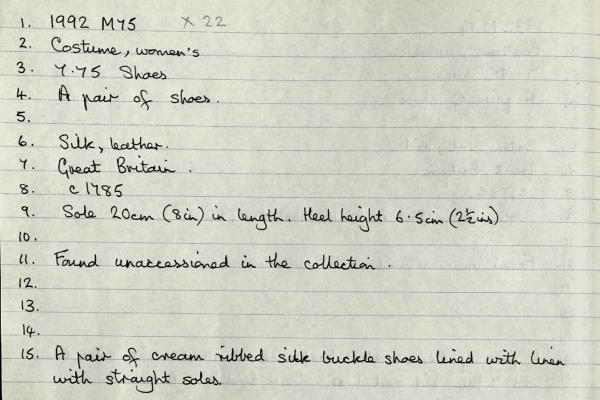 1. 1992 M75 X 22
2. Costume, women's
3. 7.75 Shoes
4. A pair of shoes.
5.
6. Silk, leather.
7. Great Britain.
8. c 1785
9. Sole 20cm (8in) in length. Heel height 6.5cm (2½ins)
10.
11. Found unaccessioned in the collection.
12.
13.
14.
15. A pair of cream ribbed silk buckle shoes lined with linen
with straight soles.